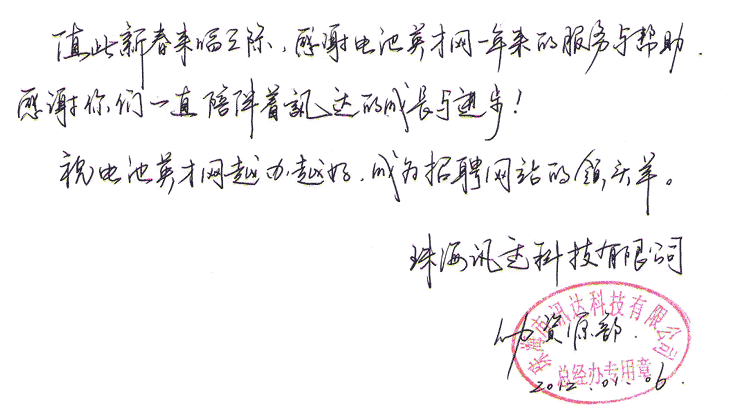 值此新春来临之际，感谢电池英才网一年来的服务与帮助．
感谢你们一直陪伴着訊达的成长与进步！
祝电池英才网越办越好，成为招聘网站的领头羊。
珠海讯达科技有限公司
人力资源部
珠海市讯达科技有限公司
总经办专用章
2012.01.06.